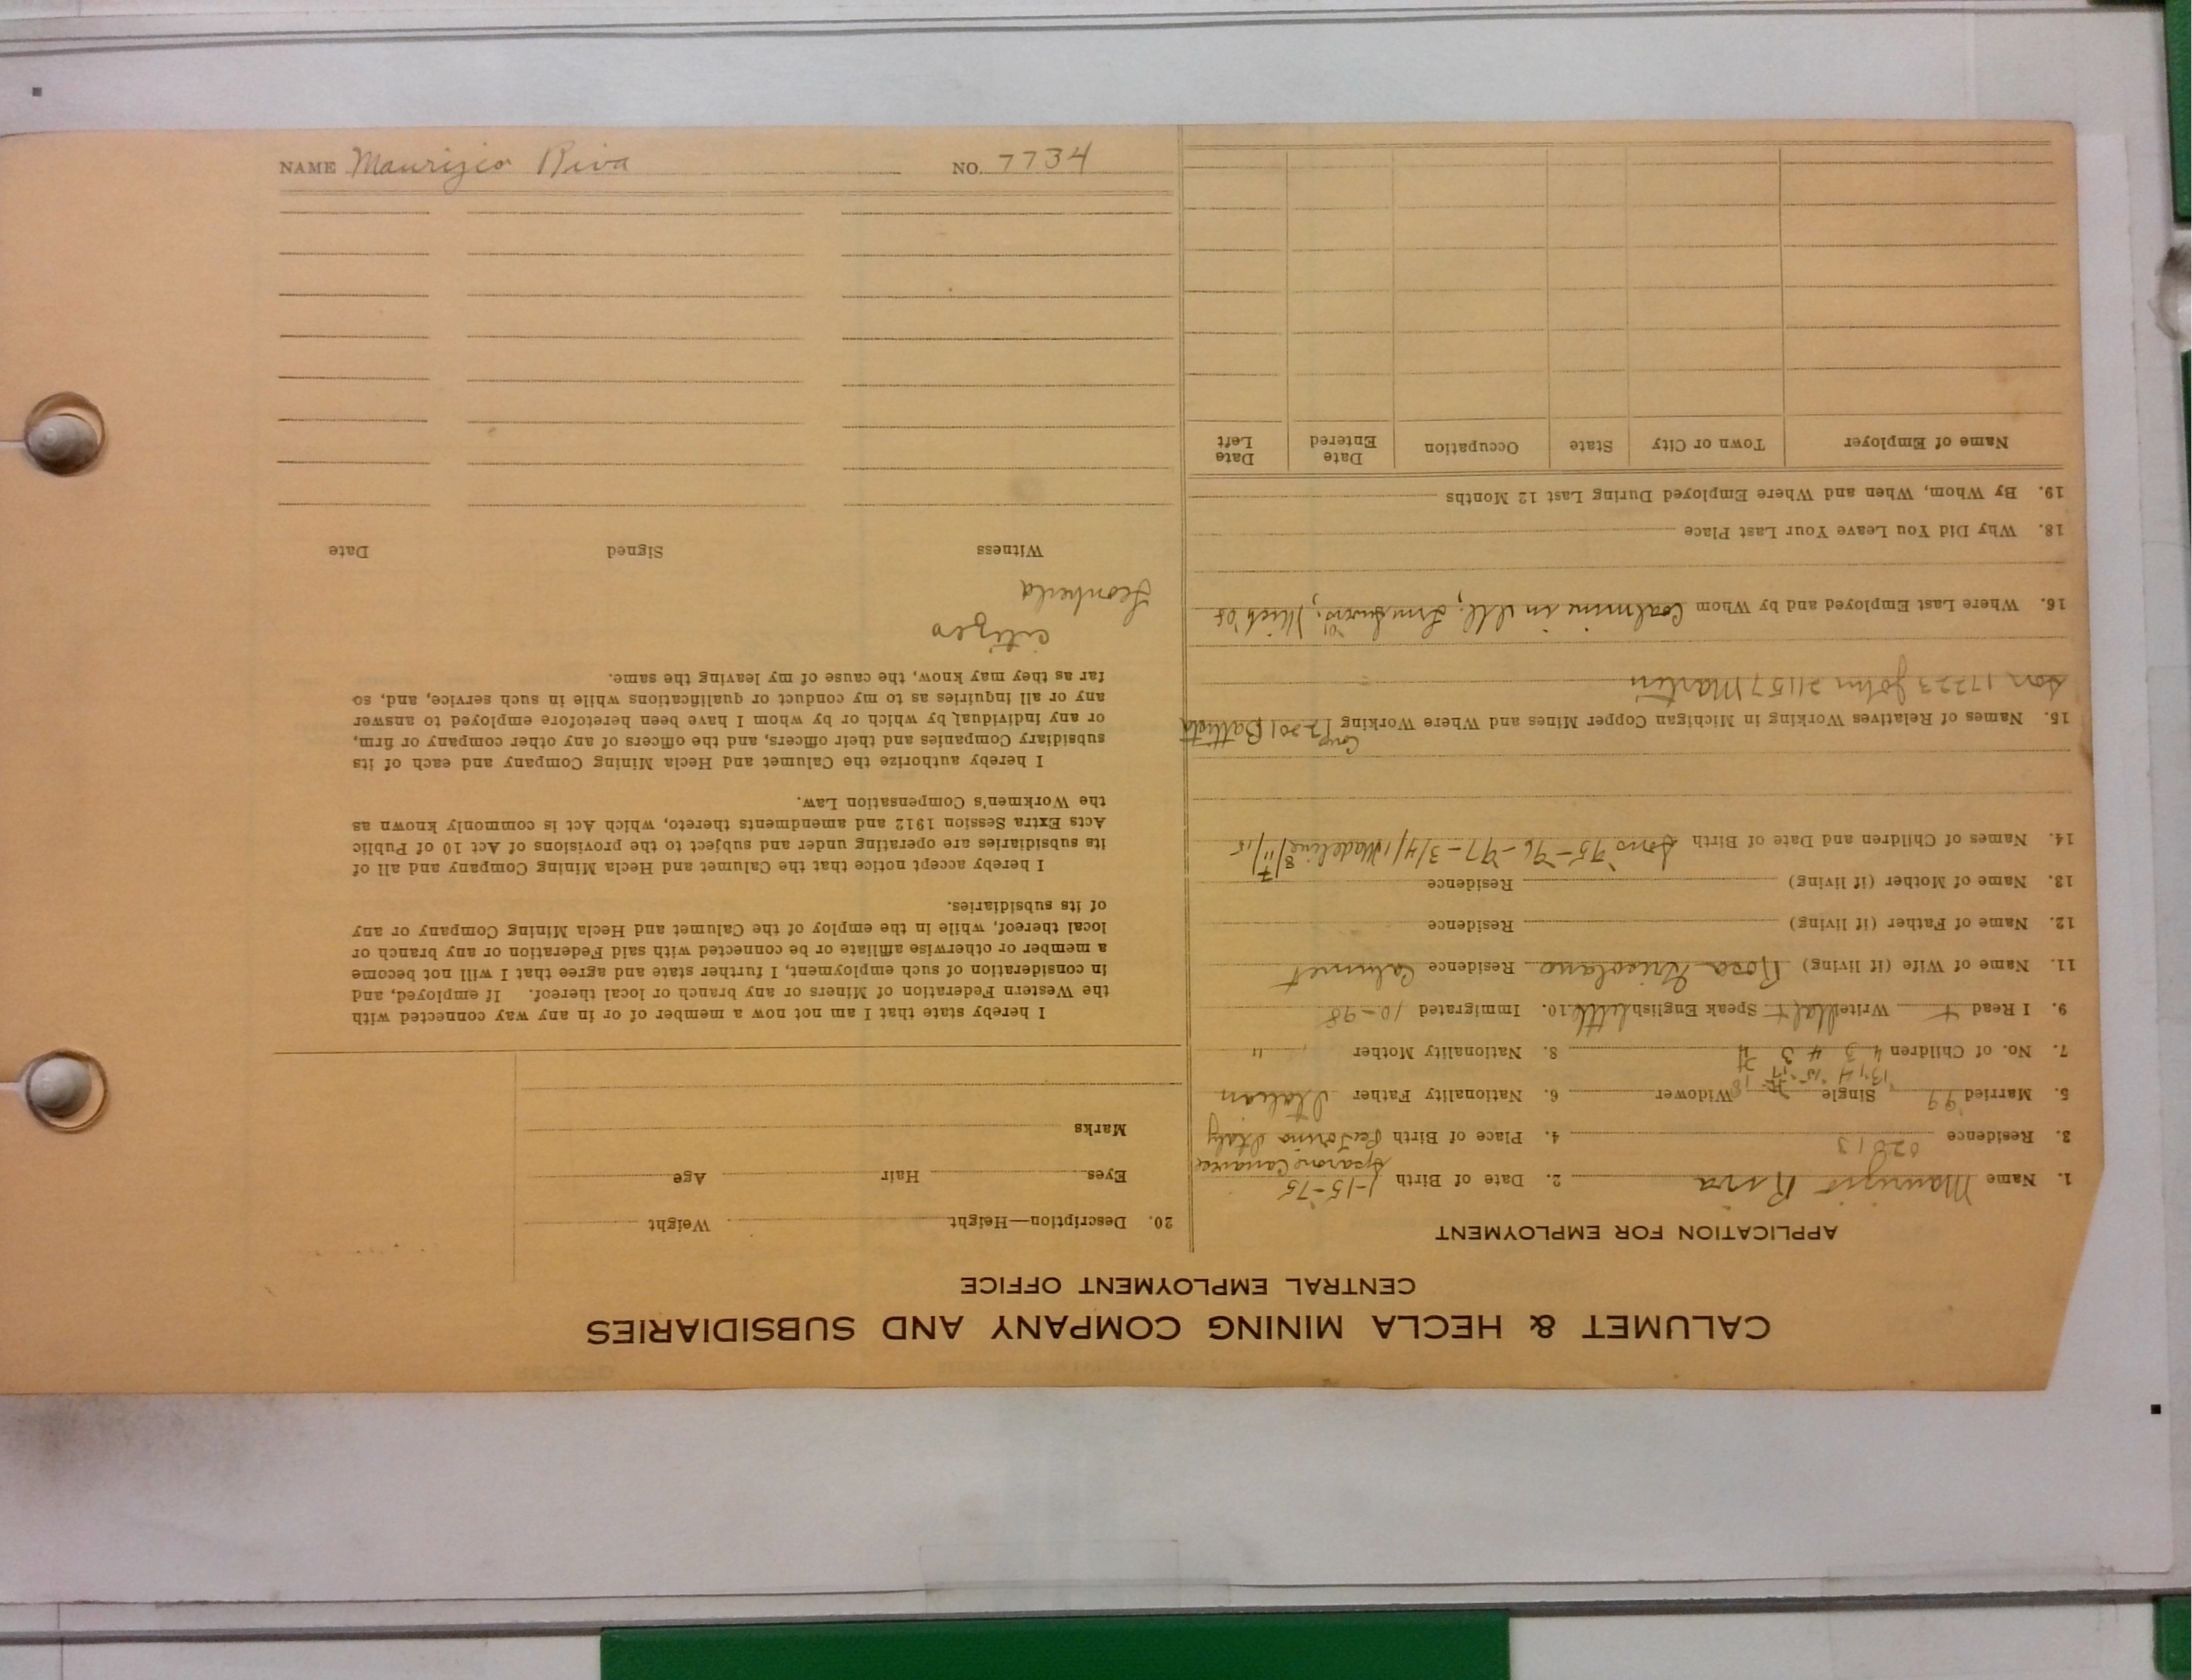 CALUMET & HECLA MINING COMPANY AND SUBSIDIARIES
CENTRAL EMPLOYMENT OFFICE
APPLICATION FOR EMPLOYMENT
1. Name Maurizio Riva 2. Date of Birth 1-15-75
3. Residence 02813 4. Place of Birth Italy
5. Married 99 Single Widower 6. Nationality Father Italian
7. No. of Children 8. Nationality Mother "
9. I Read Write Speak English little 10. Immigrated 10-98
11. Name of Wife (if living) Rosa Residence Calumet
12. Name of Father (if living) Residence
13. Name of Mother (if living) Residence
14. Names of Children and Date of Birth
15. Names of Relatives Working in Michigan Copper Mines and Where Working 17201 Battista
son 17223 John 21157 Martin
16. Where Last Employed and by Whom Coalmine in Ill.
18. Why Did You Leave Your Last Place
19. By Whom, When and Where Employed During Last 12 Months
Name of Employer Town or City State Occupation Date Entered Date Left
20. Description—Height Weight
Eyes Hair Age
Marks
I hereby state that I am not now a member of or in any way connected with
the Western Federation of Miners or any branch or local thereof. If employed, and
in consideration of such employment, I further state and agree that I will not become
a member or otherwise affiliate or be connected with said Federation or any branch or
local thereof, while in the employ of the Calumet and Hecla Mining Company or any
of its subsidiaries.
I hereby accept notice that the Calumet and Hecla Mining Company and all of
its subsidiaries are operating under and subject to the provisions of Act 10 of Public
Acts Extra Session 1912 and amendments thereto, which Act is commonly known as
the Workmen's Compensation Law.
I hereby authorize the Calumet and Hecla Mining Company and each of its
subsidiary Companies and their officers, and the officers of any other company or firm,
or any individual by which or by whom I have been heretofore employed to answer
any or all inquiries as to my conduct or qualifications while in such service, and, so
far as they may know, the cause of my leaving the same.
Witness Signed Date
NAME Maurizio Riva NO. 7734